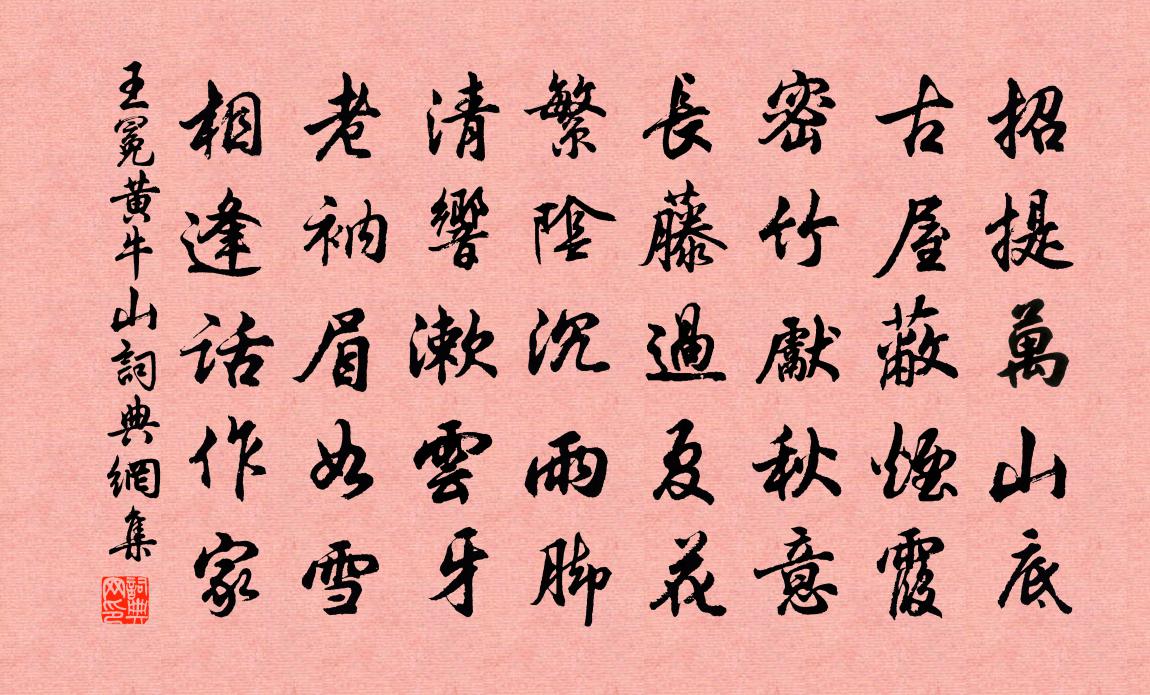 招提萬山底
古屋蔽煙霞
密竹獻秋意
長藤過夏花
繁陰沉雨腳
清響漱雲牙
老衲眉如雪
相逢話作家
王冕黃牛山詞典網集
詞典網印